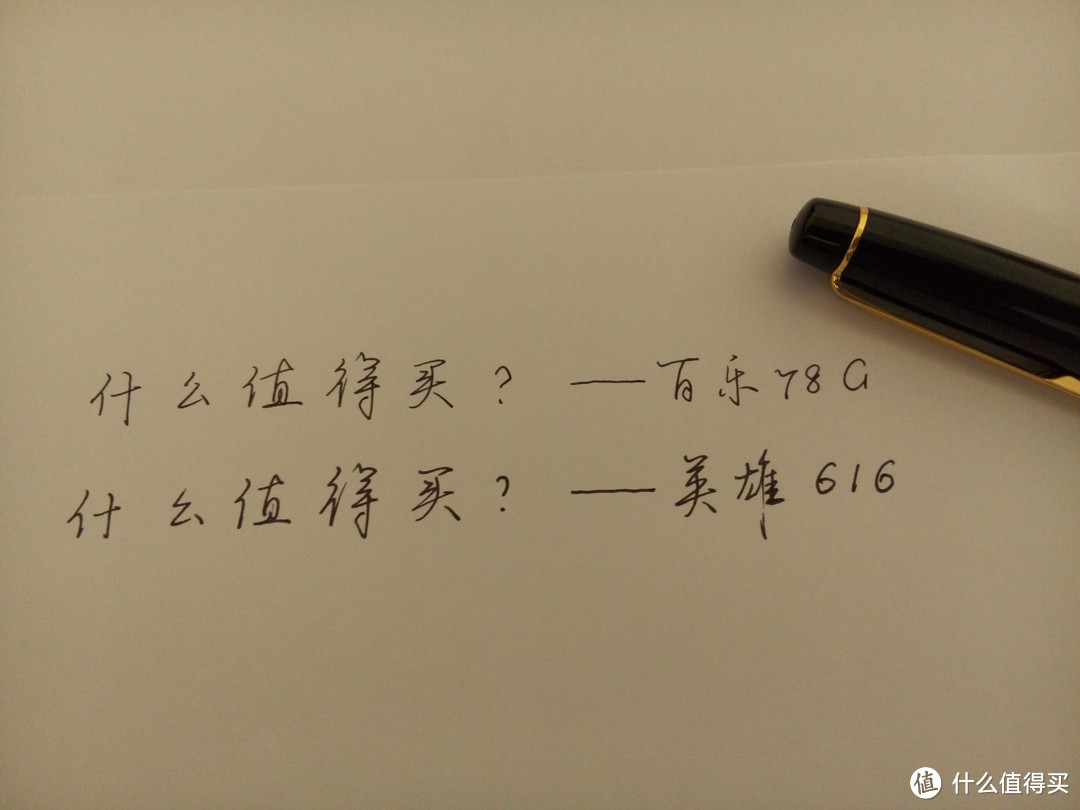 什么值得买？——百乐78G
什么值得买？——英雄616
值 什么值得买